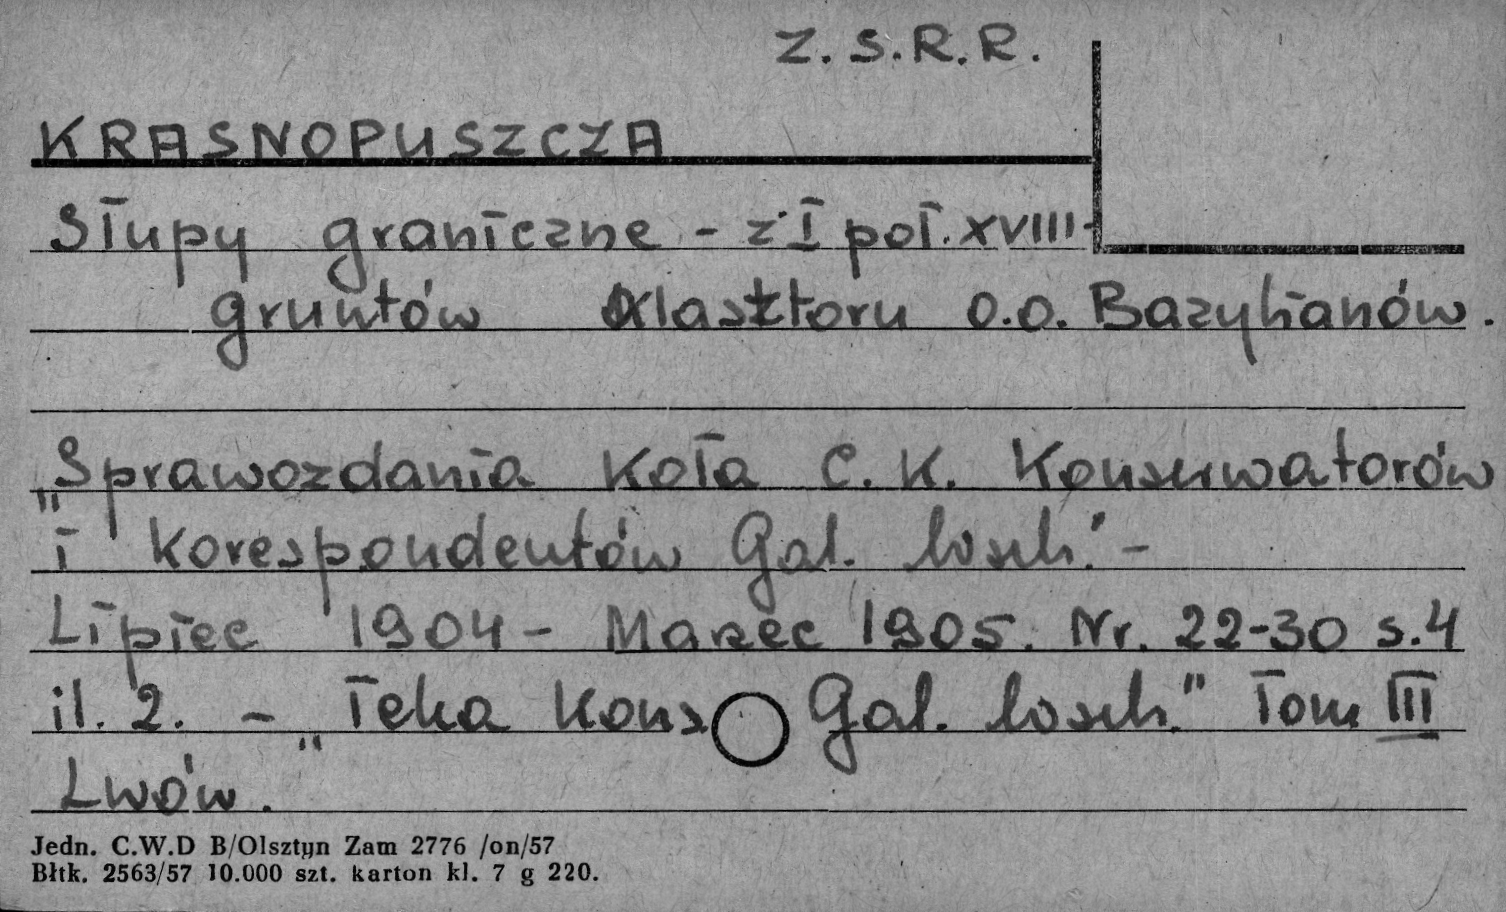 Z.S.R.R.
KRASNOPUSZCZA
Słupy graniczne - z I poł. XVIII -
gruntów klasztoru o.o. Bazylianów.
„Sprawozdania Koła C. K. Konserwatorów
i Korespondentów Gal. wsch." -
Lipiec 1904 - Marzec 1905. Nr. 22-30 s.4
il. 2. - „Teka Kons Gal. wsch." Tom III
Lwów.
Jedn. C.W.D B/Olsztyn Zam 2776 /on/57
Błtk. 2563/57 10.000 szt. karton kl. 7 g 220.